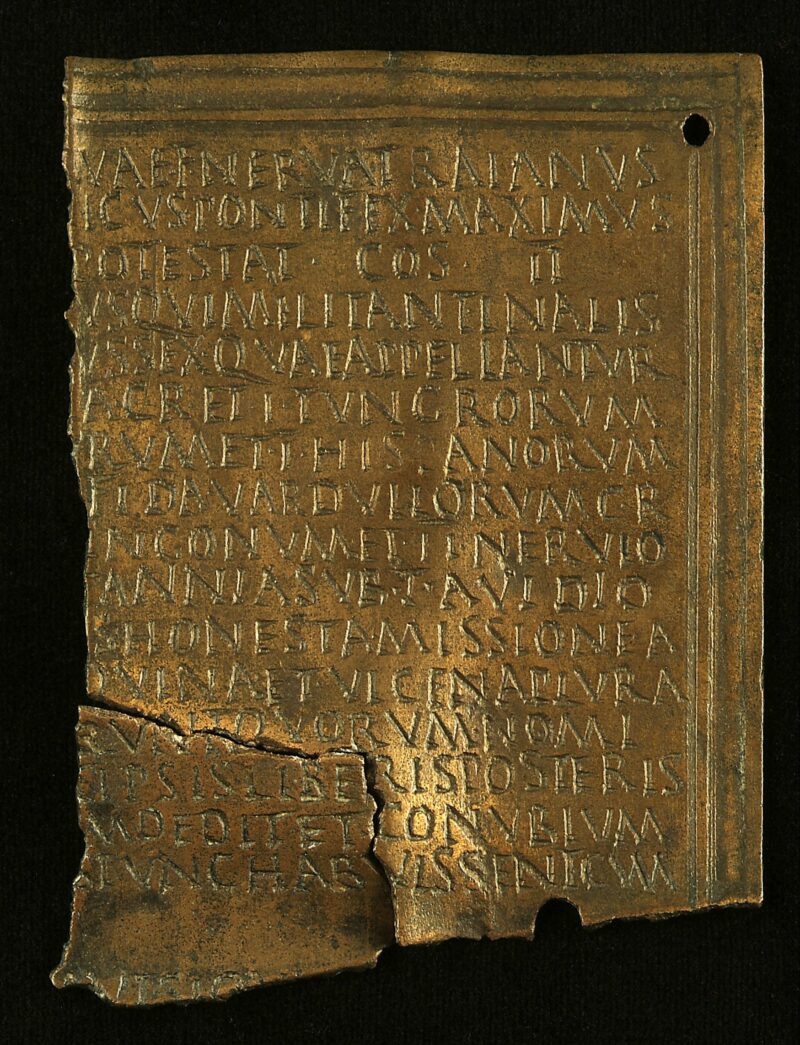 VAEFNERVATRAIANVS
ICVSPONTIFEXMAXIMVS
POTESTAT · COS · II
VSQVIMILITANTINALIS
VSSEXQVAEAPPELLANTVR
ACRETITVNGRORVM
RVMETIHISPANORVM
FIDAVARDVLLORVMC·R
INGONVMETIINERVIO
TANNIASVB·T·AVIDIO
HONESTAMISSIONEA
QVINAETVICENAPLVRA
RVNTQVORVMNOMI
IPSISLIBERISPOSTERIS
MDEDITETCONVBIVM
TVNCHABVISSENTCVM